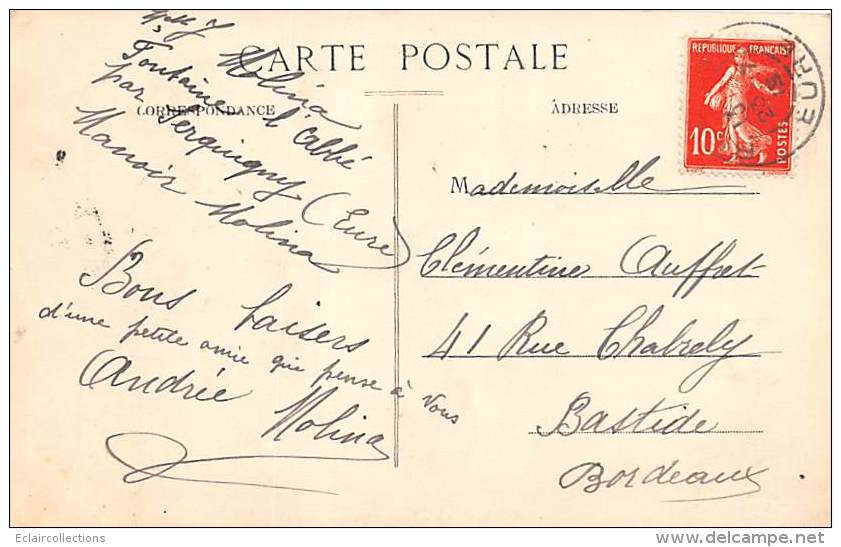 CARTE POSTALE
CORRESPONDANCE
ADRESSE
RÉPUBLIQUE FRANÇAISE
10c
POSTES
EURE
Mlle J. Molina
Fontaine l'abbé
par Serquigny (Eure)
Manoir Molina
Bons baisers
d'une petite amie qui pense à vous
Andrée Molina
Mademoiselle
Clémentine Auffret
41 Rue Chabrely
Bastide
Bordeaux
Eclaircollections
www.delcampe.net